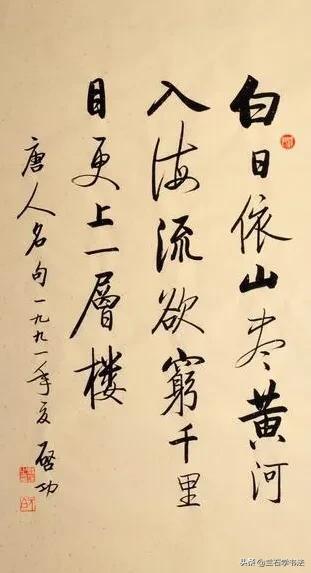 白日依山尽黄河
入海流欲窮千里
目更上一層楼
唐人名句一九九一年夏 啓功
头条 @兰石学书法